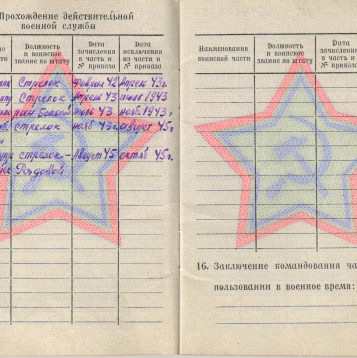 Прохождение действительной
военной службы
Должность
и воинское
звание по штату
Дата
зачисления
в часть и
№ приказа
Дата
исключения
из части
и № приказа
Стрелок Февраль 42 Апрель 43г.
Стрелок Апрель 43 1943
43 нояб. 1943г.
стрелок нояб 43г. август 45г.
стрелок - Август 45 октяб 45г.
Рядовой
Наименование
воинской части
Должность
и воинское
звание по штату
Дата
зачисления
в часть и
№ приказа
16. Заключение командования
пользовании в военное время: